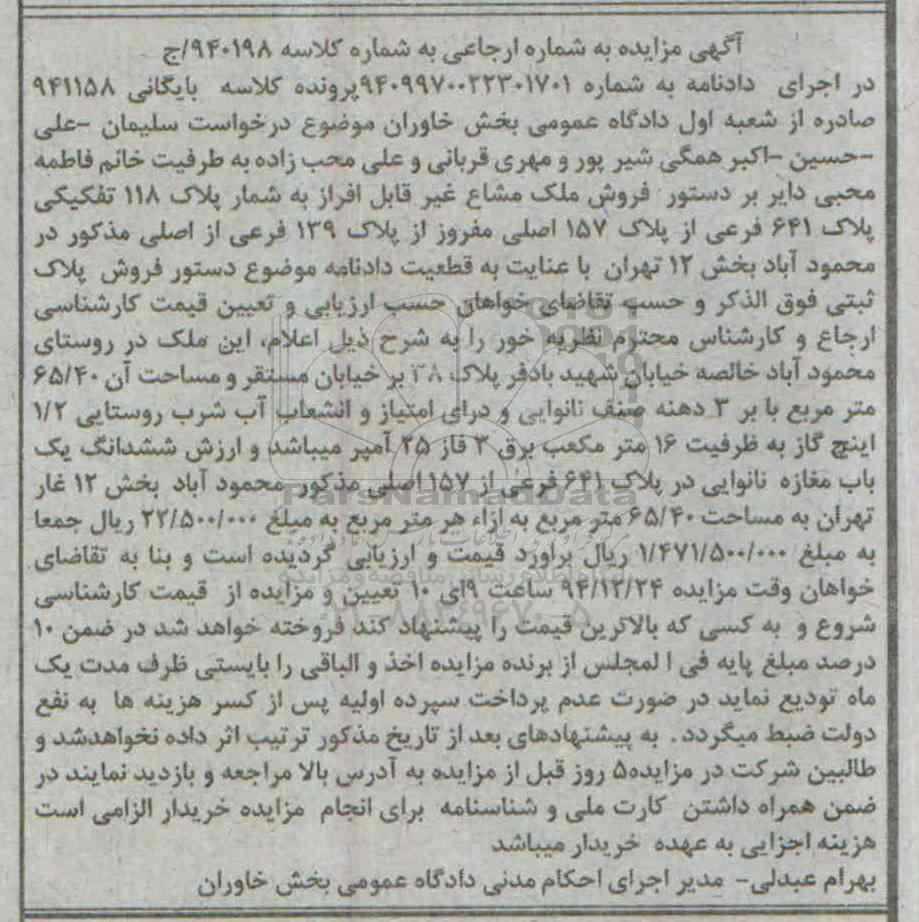 آگهی مزایده به شماره ارجاعی به شماره کلاسه ۹۴۰۱۹۸/ج
در اجرای دادنامه به شماره ۹۴۰۹۹۷۰۰۲۲۳۰۱۷۰۱پرونده کلاسه بایگانی ۹۴۱۱۵۸
صادره از شعبه اول دادگاه عمومی بخش خاوران موضوع درخواست سلیمان -علی
-حسین -اکبر همگی شیر پور و مهری قربانی و علی محب زاده به طرفیت خانم فاطمه
محبی دایر بر دستور فروش ملک مشاع غیر قابل افراز به شمار پلاک ۱۱۸ تفکیکی
پلاک ۶۴۱ فرعی از پلاک ۱۵۷ اصلی مفروز از پلاک ۱۳۹ فرعی از اصلی مذکور در
محمود آباد بخش ۱۲ تهران با عنایت به قطعیت دادنامه موضوع دستور فروش پلاک
ثبتی فوق الذکر و حسب تقاضای خواهان حسب ارزیابی و تعیین قیمت کارشناسی
ارجاع و کارشناس محترم نظریه خور را به شرح ذیل اعلام، این ملک در روستای
محمود آباد خالصه خیابان شهید بادفر پلاک ۳۸ بر خیابان مستقر و مساحت آن ۶۵/۴۰
متر مربع با بر ۳ دهنه صنف نانوایی و درای امتیاز و انشعاب آب شرب روستایی ۱/۲
اینچ گاز به ظرفیت ۱۶ متر مکعب برق ۳ فاز ۲۵ آمپر میباشد و ارزش ششدانگ یک
باب مغازه نانوایی در پلاک ۶۴۱ فرعی از ۱۵۷ اصلی مذکور محمود آباد بخش ۱۲ غار
تهران به مساحت ۶۵/۴۰ متر مربع به ازاء هر متر مربع به مبلغ ۲۲/۵۰۰/۰۰۰ ریال جمعا
به مبلغ ۱/۴۷۱/۵۰۰/۰۰۰ ریال براورد قیمت و ارزیابی گردیده است و بنا به تقاضای
خواهان وقت مزایده ۹۴/۱۲/۲۴ ساعت ۹ای ۱۰ تعیین و مزایده از قیمت کارشناسی
شروع و به کسی که بالاترین قیمت را پیشنهاد کند فروخته خواهد شد در ضمن ۱۰
درصد مبلغ پایه فی ا لمجلس از برنده مزایده اخذ و الباقی را بایستی ظرف مدت یک
ماه تودیع نماید در صورت عدم پرداخت سپرده اولیه پس از کسر هزینه ها به نفع
دولت ضبط میگردد. به پیشنهادهای بعد از تاریخ مذکور ترتیب اثر داده نخواهدشد و
طالبین شرکت در مزایده۵ روز قبل از مزایده به آدرس بالا مراجعه و بازدید نمایند در
ضمن همراه داشتن کارت ملی و شناسنامه برای انجام مزایده خریدار الزامی است
هزینه اجزایی به عهده خریدار میباشد
بهرام عبدلی- مدیر اجرای احکام مدنی دادگاه عمومی بخش خاوران
ParsNamadData